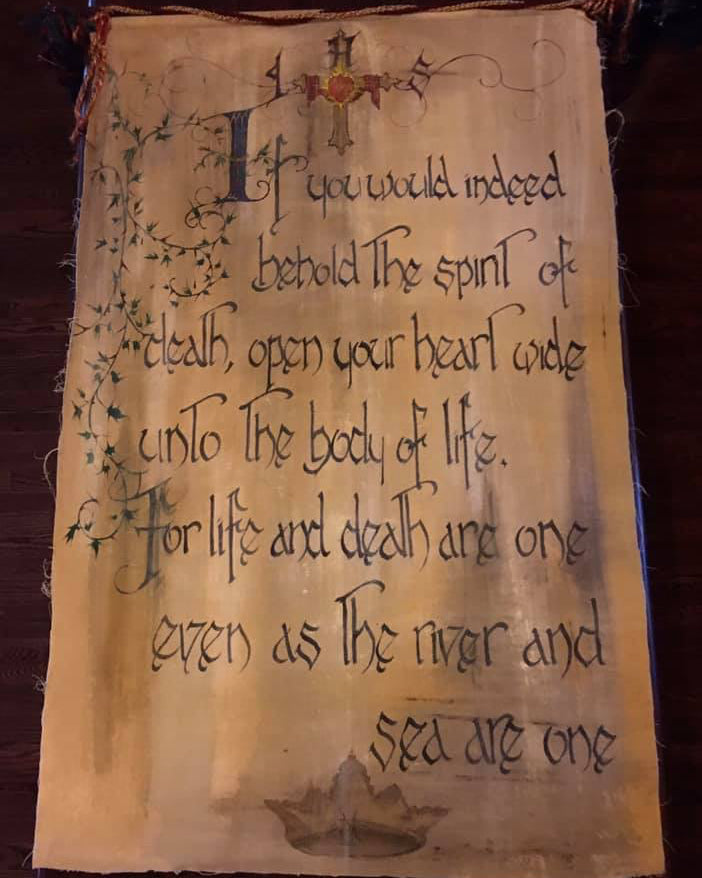 I H S
If you would indeed
behold the spirit of
death, open your heart wide
unto the body of life.
For life and death are one
even as the river and
sea are one